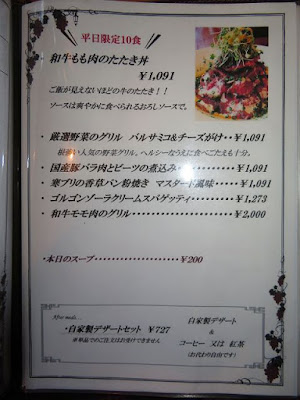 平日限定10食
和牛もも肉のたたき丼
￥1,091
ご飯が見えないほどの牛のたたき！！
ソースは爽やかに食べられるおろしソースで。
・厳選野菜のグリル バルサミコ&チーズがけ・・￥1,091
根強い人気の野菜グリル。ヘルシーなうえに食べごたえも十分。
・国産豚バラ肉とビーツの煮込み・・・・・・・・・・・・￥1,091
・寒ブリの香草パン粉焼き マスタード風味・・・・・￥1,091
・ゴルゴンゾーラクリームスパゲッティ・・・・・・・・￥1,273
・和牛モモ肉のグリル・・・・・・・・・・・・・・・・・・￥2,000
・本日のスープ・・・・・・・・・・・・・・・・・・￥200
After meal...
・自家製デザートセット ￥727
※単品でのご注文はお受けできません
自家製デザート
&
コーヒー 又は 紅茶
（お代わり自由です）